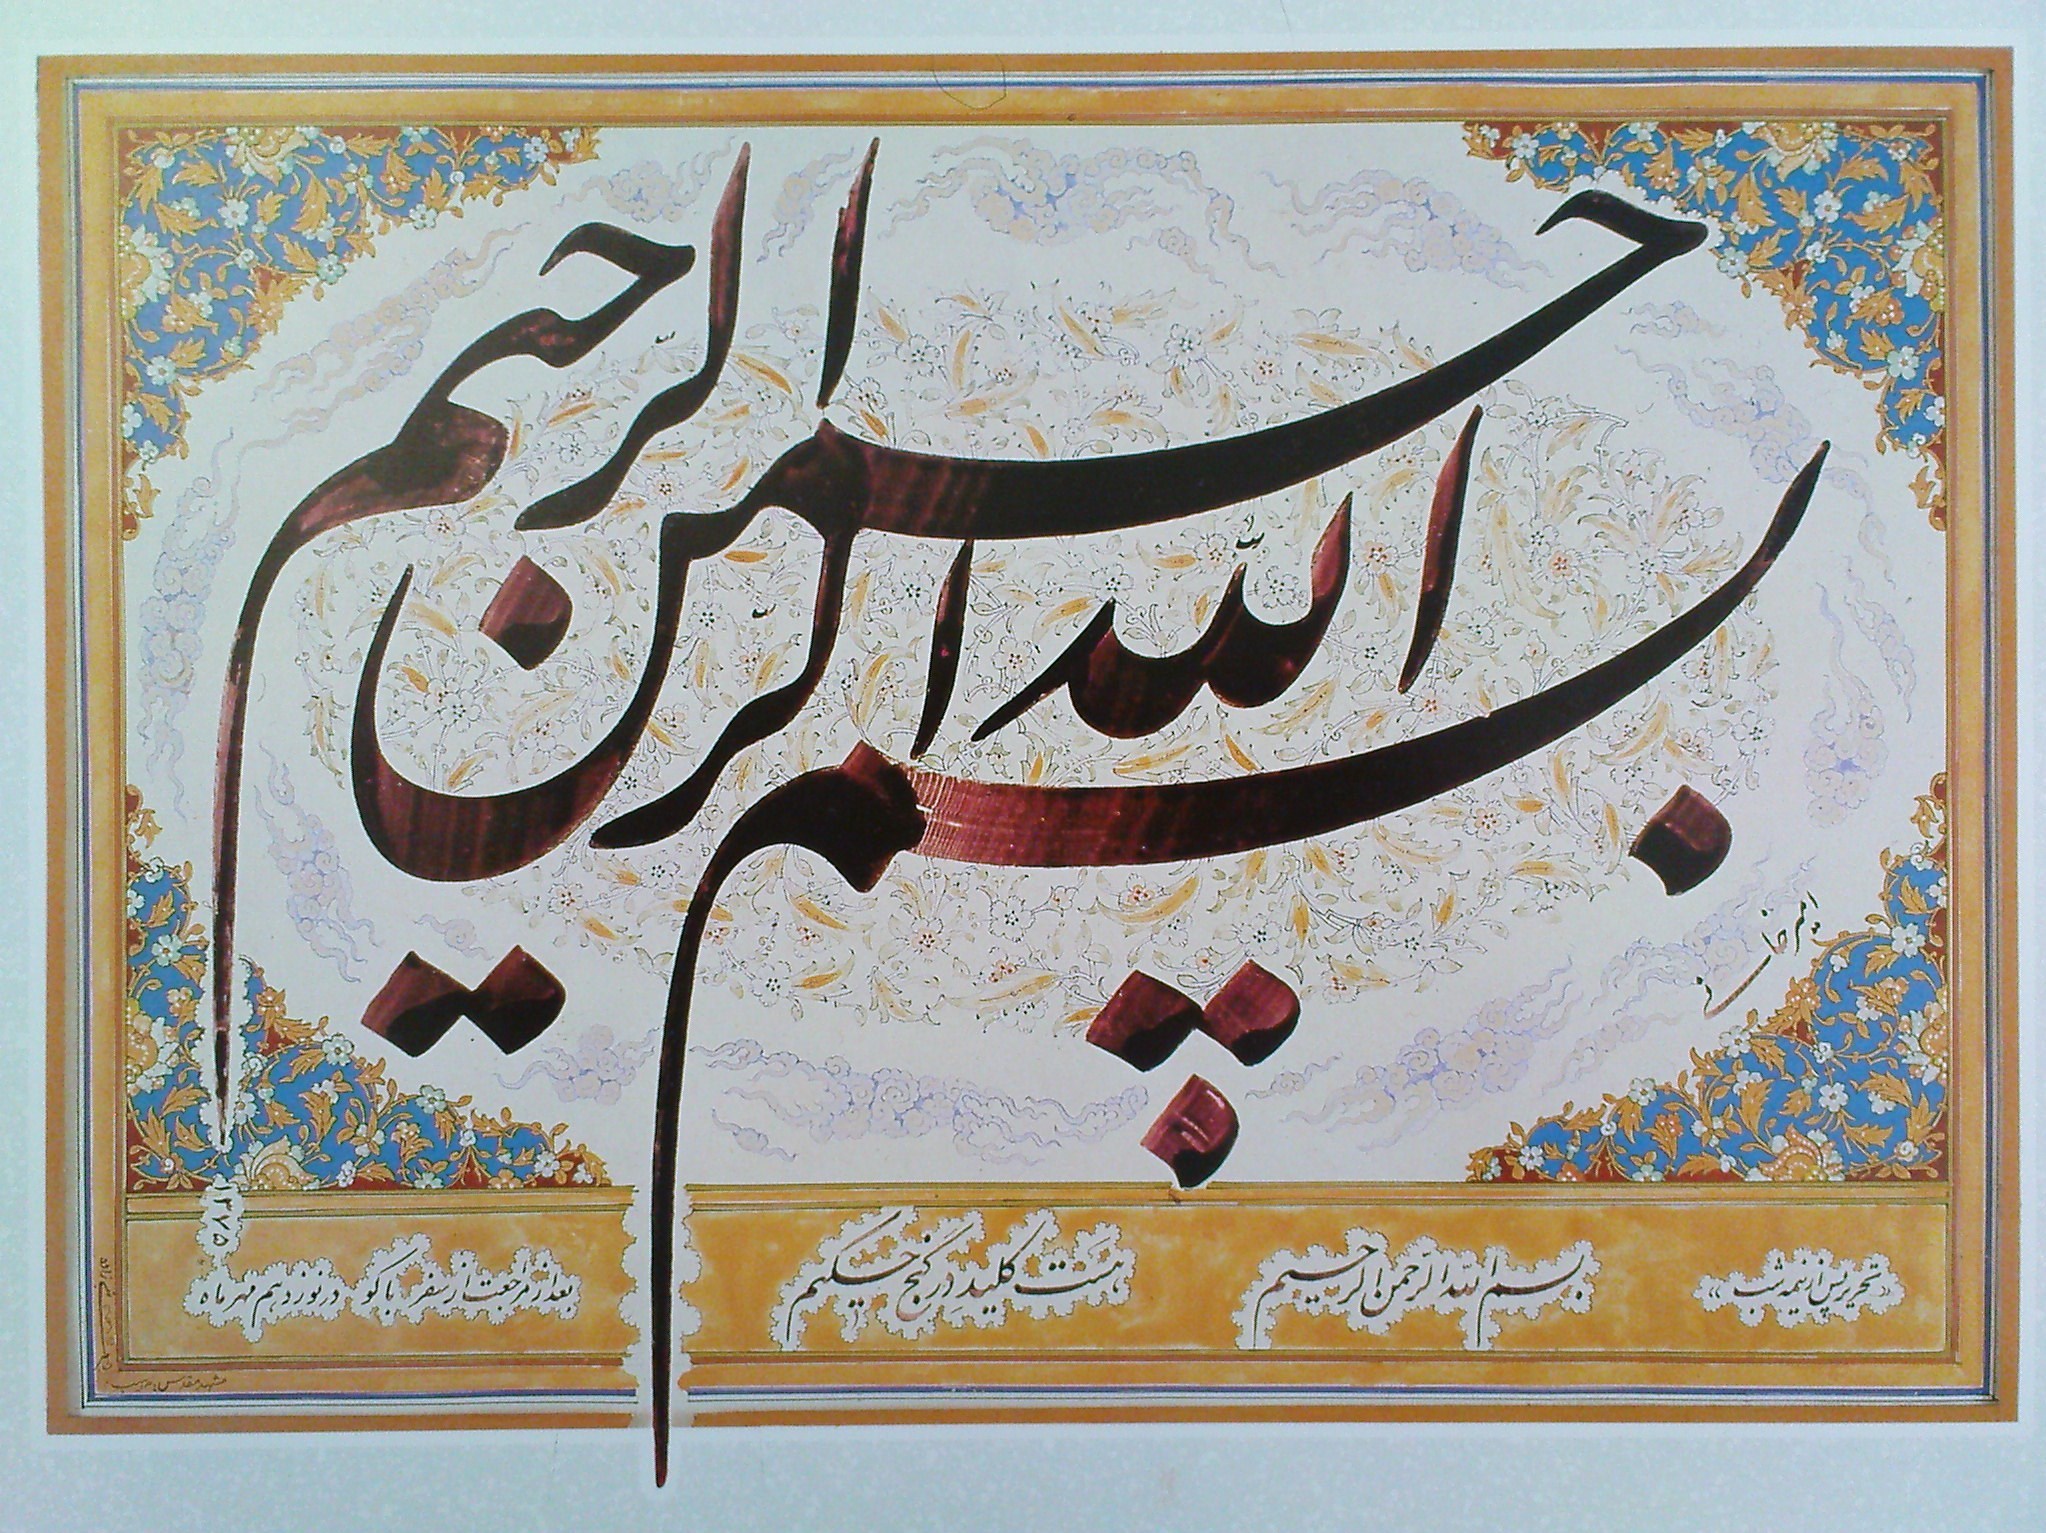 بسم الله الرّحمن الرّحیم
امیرخانی
«تحریر پس از نیمه شب»
بسم الله الرّحمن الرّحیم
هست کلیدِ درِ گنجِ حکیم
بعد از مراجعت از سفر باکو در نوزدهم مهرماه
۱۳۷۵
مشهد مقدس